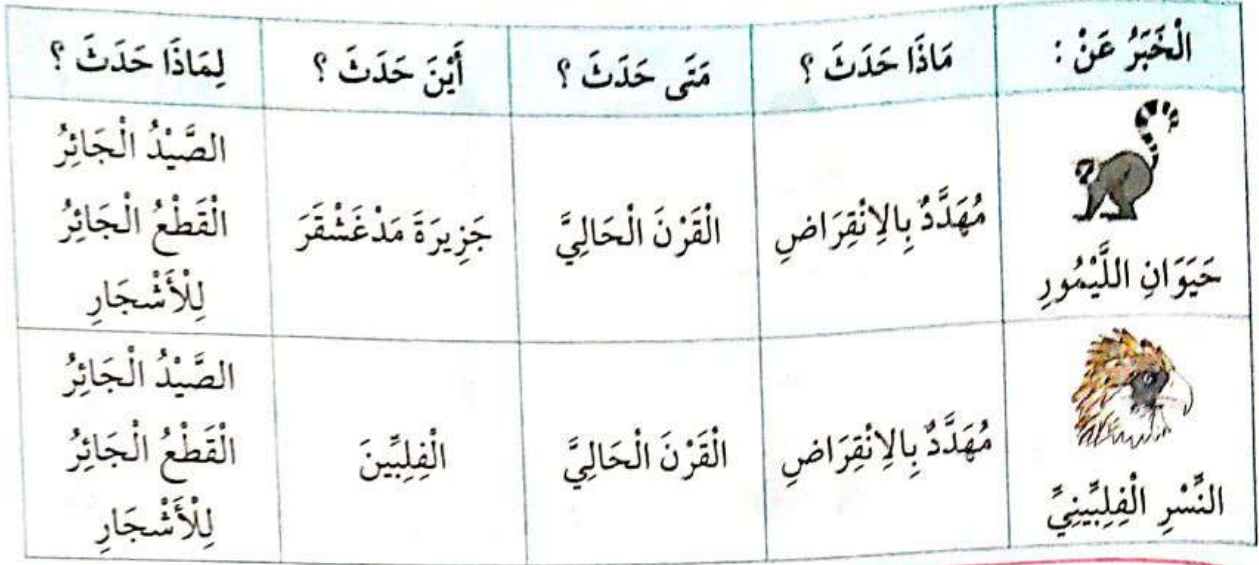 الْخَبَرُ عَنْ :
مَاذَا حَدَثَ ؟
مَتَى حَدَثَ ؟
أَيْنَ حَدَثَ ؟
لِمَاذَا حَدَثَ ؟
حَيَوَانِ اللَّيْمُورِ
مُهَدَّدٌ بِالِانْقِرَاضِ
الْقَرْنَ الْحَالِيَّ
جَزِيرَةَ مَدْغَشْقَرَ
الصَّيْدُ الْجَائِرُ
الْقَطْعُ الْجَائِرُ
لِلْأَشْجَارِ
النَّسْرِ الْفِلِبِّينِيِّ
مُهَدَّدٌ بِالِانْقِرَاضِ
الْقَرْنَ الْحَالِيَّ
الْفِلِبِّينَ
الصَّيْدُ الْجَائِرُ
الْقَطْعُ الْجَائِرُ
لِلْأَشْجَارِ